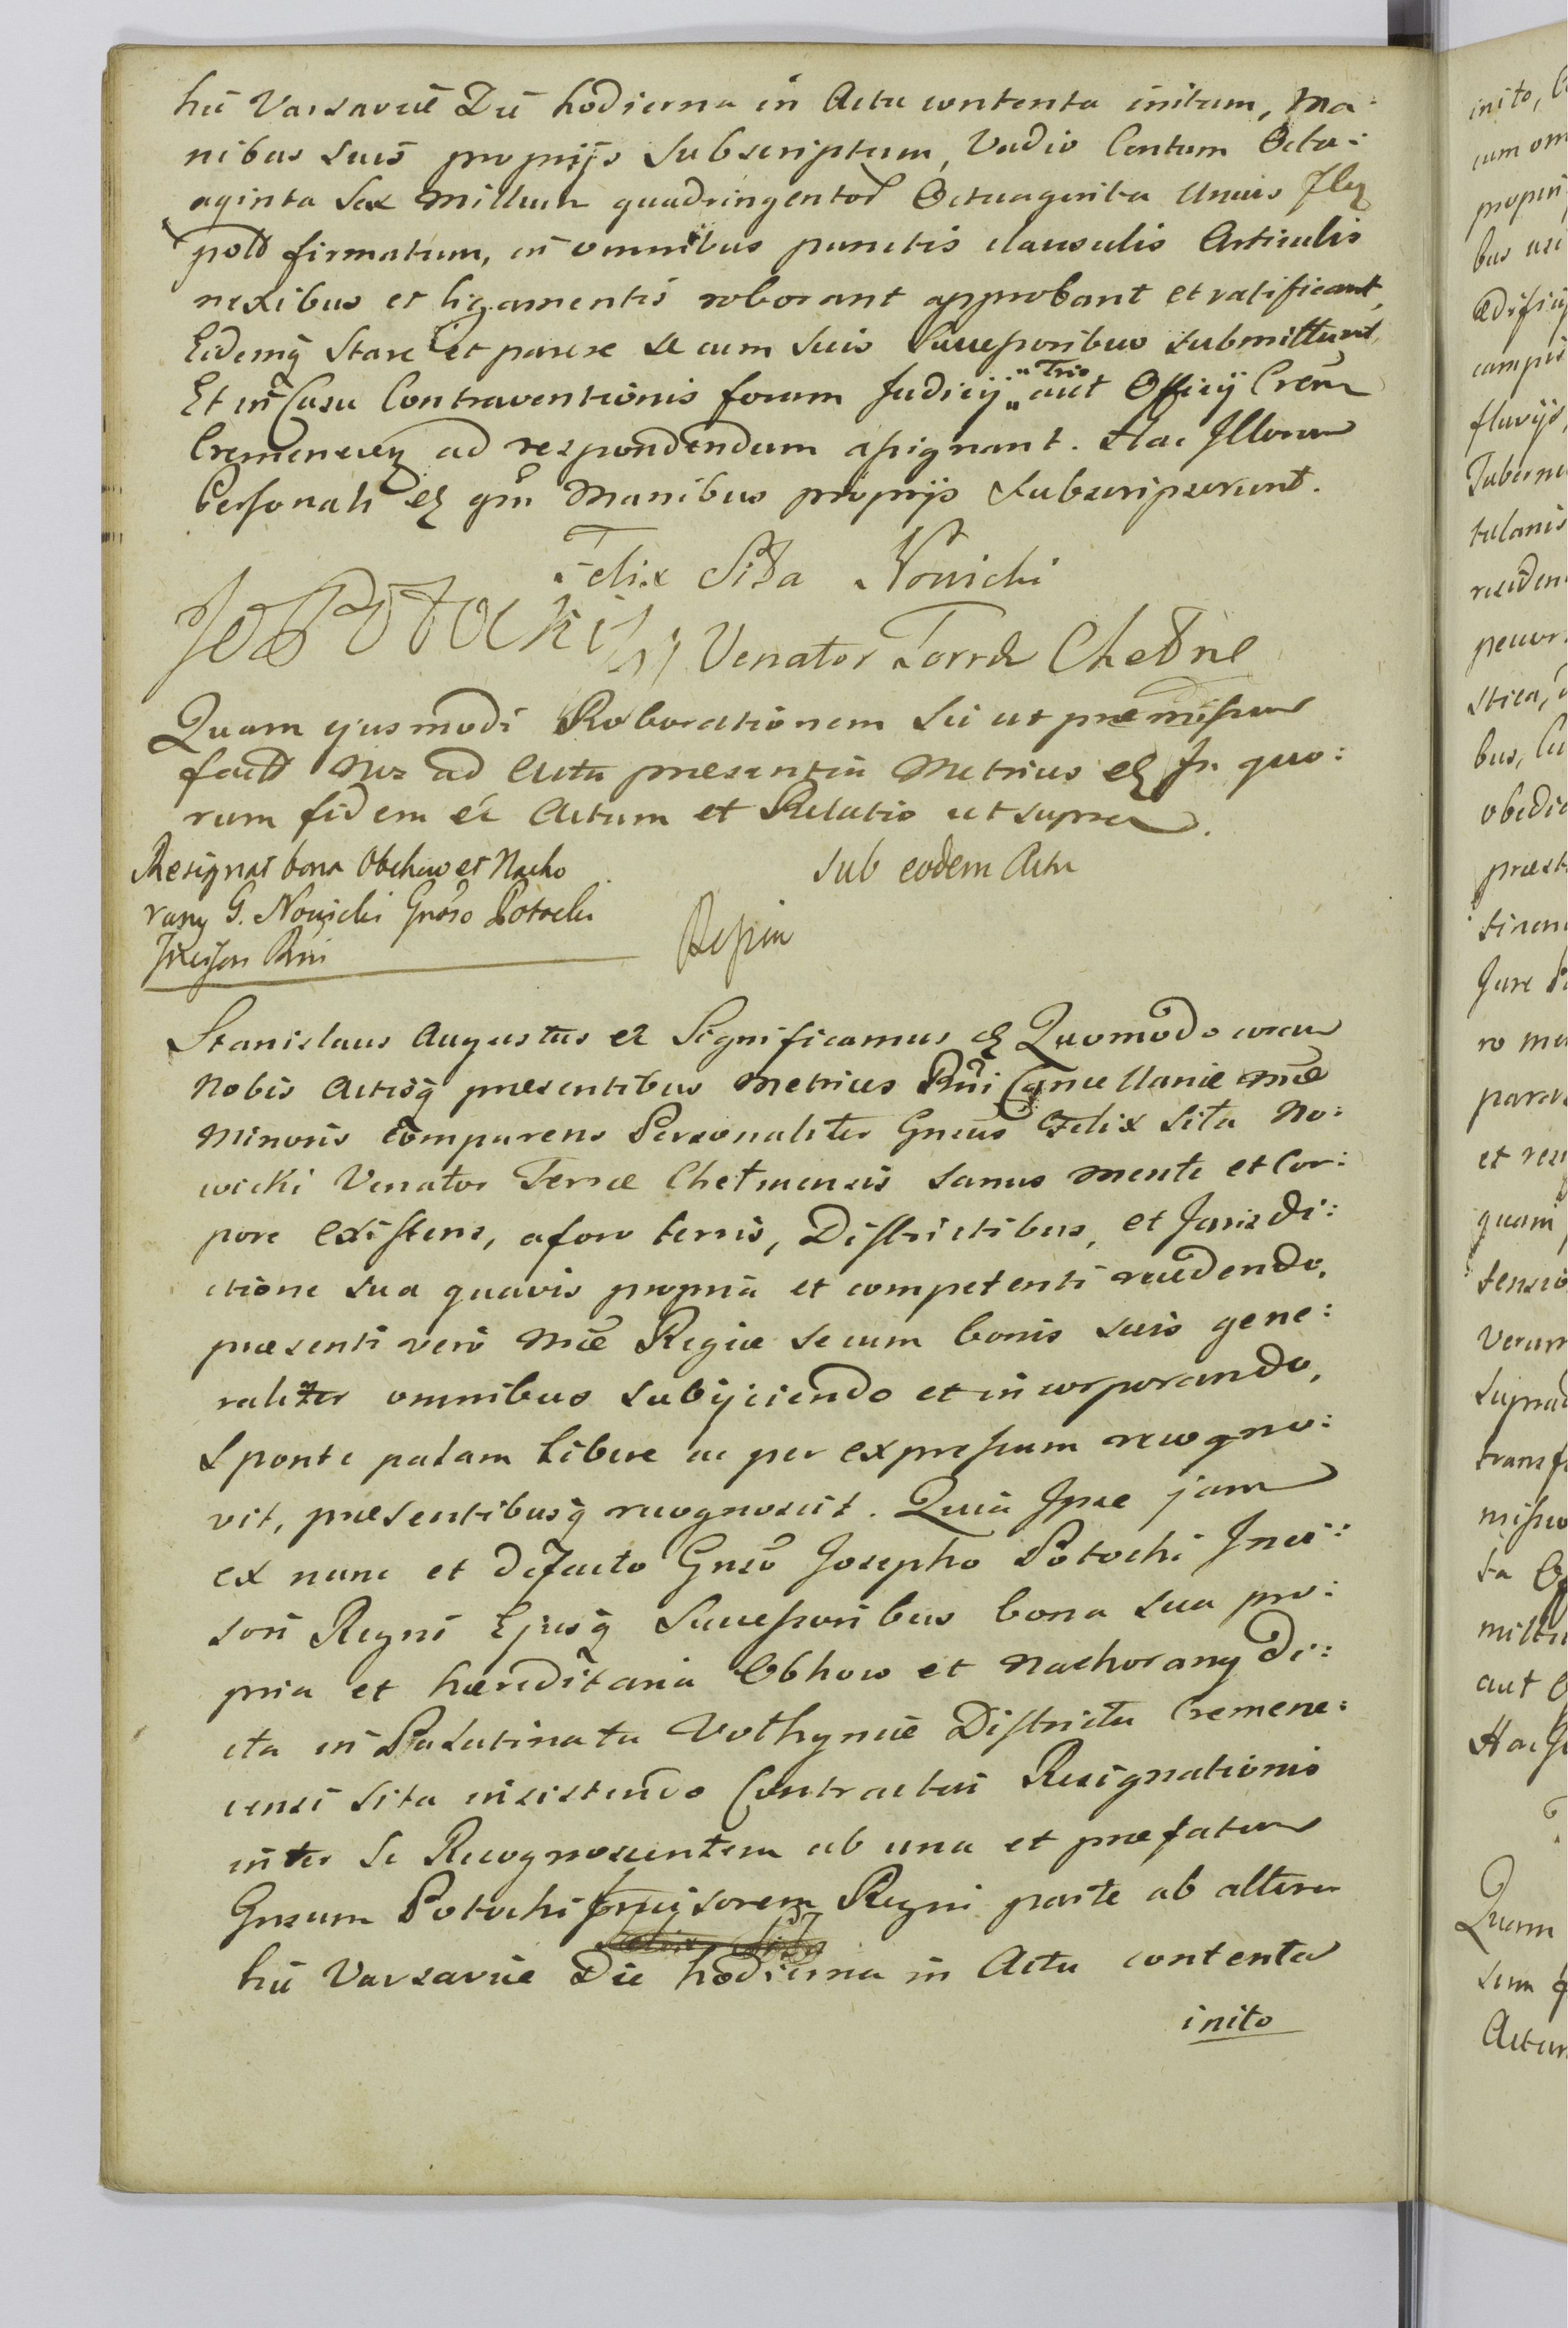 hic Varsaviæ Die hodierna in Actu contenta initum, Ma:
nibus suis proprijs subscriptum, Vadio Centum Octu:
aginta Sex Millium quadringentor Octuaginta Unius Flz
pold firmatum, in omnibus punctis clausulis Articulis
nexibus et ligamentis roborant approbant et ratificant,
Eidemq Stare et parere se cum suis Successoribus submittunt,
Et in Casu Contraventionis forum Judicij "Trio" aut Officij Crens
Cremenecen ad respondendum assignant. Hac Illorum
Personali & qm Manibus proprijs Subscripserunt.
Felix Sita Nowicki
Jos Potocki Venator Terræ Chełme
Quam ejusmodi Roborationem sic ut præmissum
factd Nos ad Acta præsentia Metrices & In quo:
rum fidem & Actum et Relatio ut supra.
Resignat bona Obchow et Nacho
rany G. Nowicki Gnoso Potocki
Incisori Rni
sub eodem Actu
Stanislaus Augustus & Significamus & Quomodo coram
Nobis Actisq præsentibus Metrices Rni Cancellariæ Mæ
Minoris Comparens Personaliter Gnsus Felix Sita No:
wicki Venator Terræ Chełmensis Sanus mente et Cor:
pore Existens, a foro terris, Districtibus, et Jurisdi:
ctione sua quavis propria et competenti recedendo,
præsenti vero Mæ Regiæ se cum bonis suis gene:
raliter omnibus subijciendo et incorporando,
Sponte palam libere ac per expressum recogno:
vit, præsentibusq recognoscit. Quia Ipse jam
ex nunc et de facto Gnso Josepho Potocki Inci:
sori Regni Ejusq Successoribus bona sua pro:
pria et hæreditaria Obhow et Nachorany di:
cta in Palatinatu Volhyniæ Districtu Cremene:
censi sita insistendo Contractui Resignationis
inter Se Recognoscentem ab una et præfatum
Gnsum Potocki Incisorem Regni parte ab altera
hic Varsaviæ Die hodierna in Actu contenta
inito